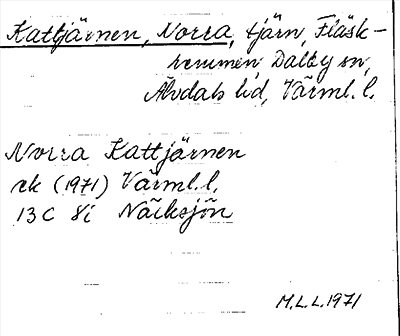 Kattjärnen, Norra, tjärn, Fläsk-
remmen Dalby sn,
Älvdals hd, Värml. l.
Norra Kattjärnen
rk (1971) Värml. l.
13 C 8i Näcksjön
M.L.L. 1971